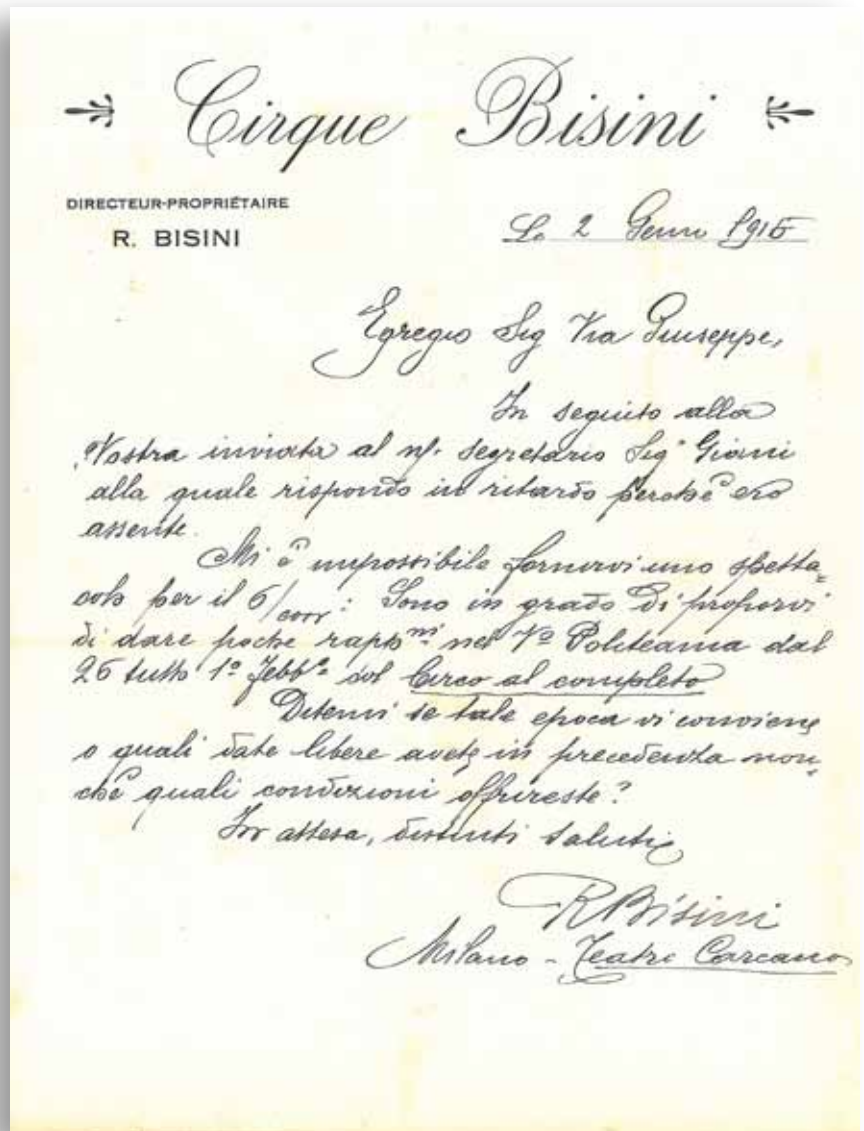 Cirque Bisini
DIRECTEUR-PROPRIÉTAIRE
R. BISINI
Li 2 Genn 1915
Egregio Sig Via Giuseppe,
In seguito alla
Vostra inviata al ns. segretario Sigr Gianni
alla quale rispondo in ritardo perchè ero
assente.
Mi è impossibile fornirvi uno spetta=
colo per il 6/corr: Sono in grado di proporvi
di dare poche rappni nel Vo Politeama dal
26 tutto 1º Febbo col Circo al completo
Ditemi se tale epoca vi conviene
o quali date libere avete in precedenza non=
chè quali condizioni offrireste?
In attesa, distinti saluti
RBisini
Milano - Teatro Carcano